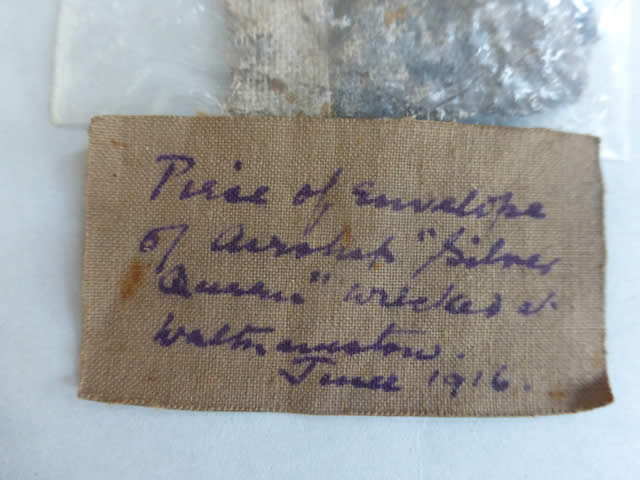 Piese of envelope
of Airship "Silver
Queen" wrecked at
Walthamstow.
June 1916.